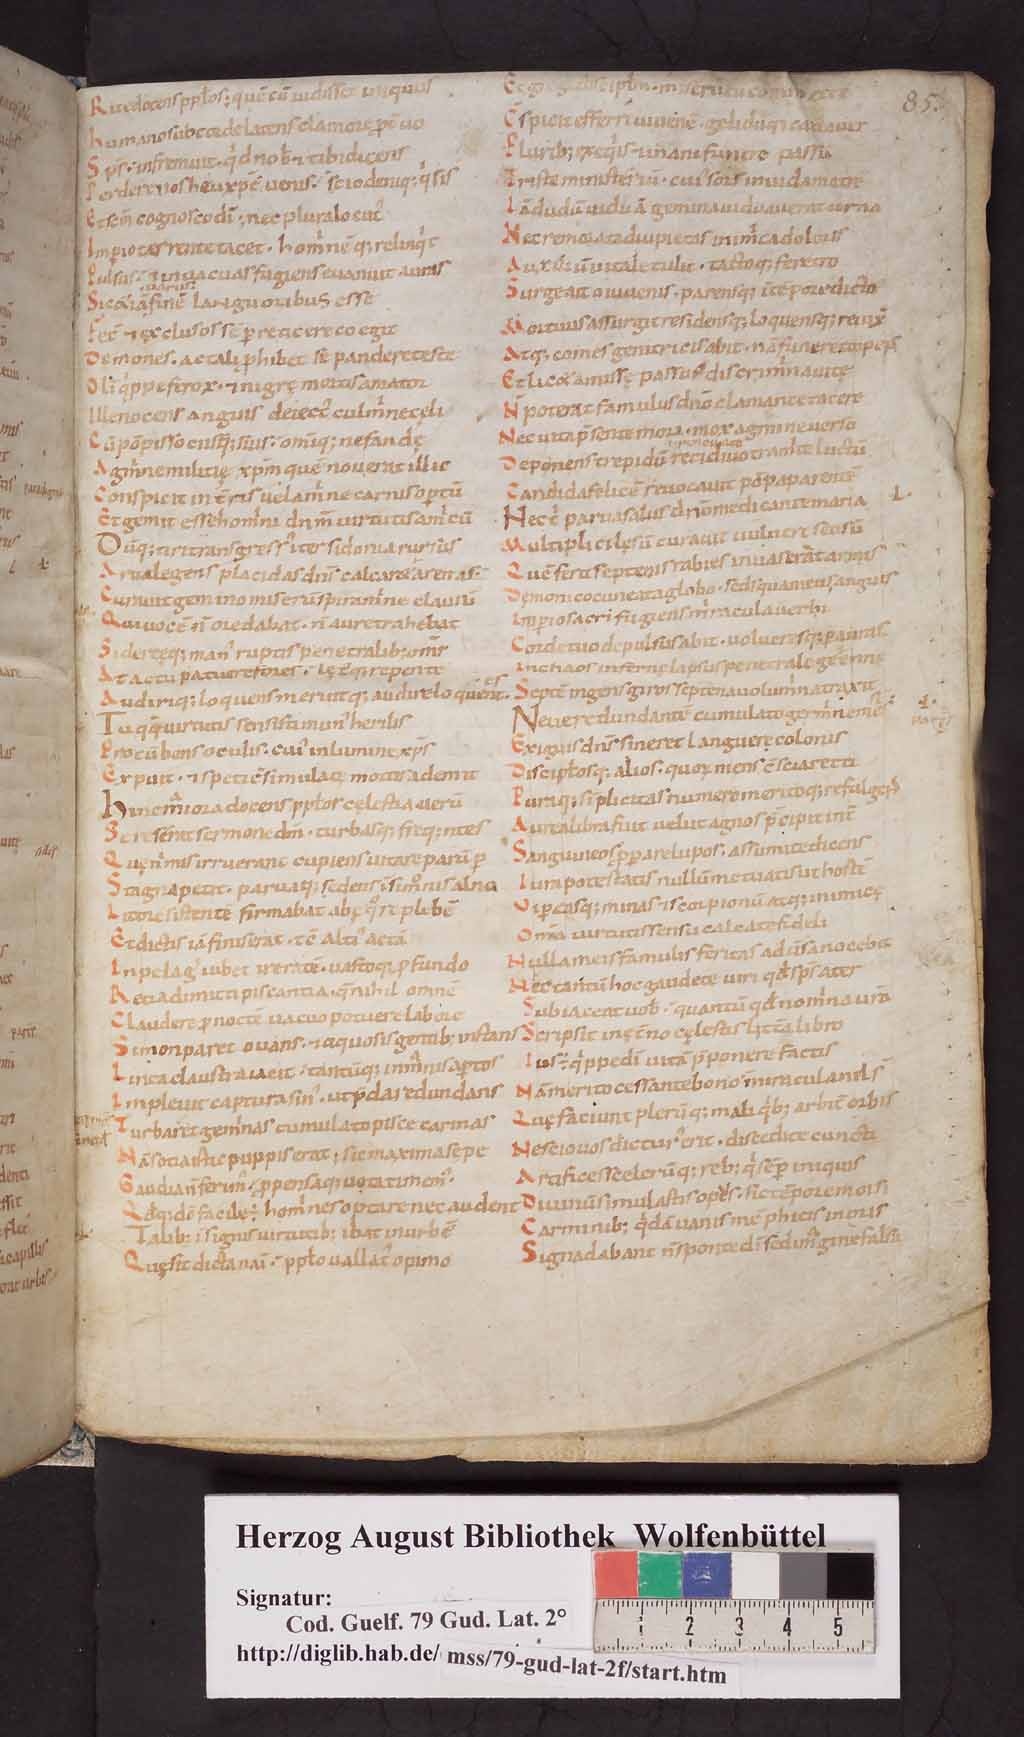 85.
Rite docens pplos; quē cū uidisset iniquus
humano sub corde latens clamore
Sps. infremuit. qd nob & tibi dicens
Perdere nos heu xpē uenis. scio denique; qs sis
Et sēm cognosco dī; nec plura locut
Impio terrente tacet. homīnēq; relinqt
Pulsus. & in uacuas fugiens euanuit auras
Sic oīa finē languoribus esse
uarius
Fec & exclusos sēp reticere coegit
Demones. ac tali phibet se pandere teste
Oli qppe ferox. & nigrę mortis amator
Ille nocens anguis deiect culmīne cęli
Cū pōpis socusq; suis. omīq; nefandę
Agmīne militię xpm quē nouerat illic
Conspicit in trīs uelamīne carnis optū
Et gemit esse homīni dnm uirtutis amicū
Dūq; tiri transgress iter sidonia rursus
Arua legens placidas dns calcar& arenas.
Cumuit gemino miserū spiramīne clausū
Qui uocē n ore dabat. n aure trahebat
Sidereęq; man ruptis penetralib; oms
At actu patuere fores.
Audiriq; loquens meruitq; audire loquentes.
Tu qq uirtutis sensisti mun herilis
Procū bens oculis. cui in lumine xps
Expuit. & speciē simulatę mortis ademit
hinc maiora docens pplos cęlestia uerū
Se reserat sermone dm. turbasq; freqntes
Quę nimis irruerant cupiens uitare parūp
Stagna petit. paruaq; sedens
Litore sistentē firmabat
Et dictis iā finis erat. tē
In pelag iubet ire ratē. uastoq; pfundo
Retia dimitti piscantia. q nihil omnē
Claudere p noctē uacuo potuere labore
Simon paret ouans. & aquosis gentib; instans
Lintea claustra iacit. tantūq; inmīnis aptos
Impleuit captura sin. ut pda redundans
Turbaret gemīnas cumulato pisce carinas
Nā socia hic puppis erat; sic maxima sepe
Gaudia nferun. ppensaq; uota timent.
Qdq; dō facile ē homīnes optare nec audent
Talib; insignis uirtutib; ibat in urbē
Quę sit dicta naī. pplo uallat opimo
Et grege discipłm.
Cspicit efferri iuuenē. gelidūq; cadauer
Plurib; exequis unani funere passū
Triste ministeriū. cui sors inuida matrē
Iādudū uiduā gemina uiduauerat urna
Nec remorata diu pietas inimīca doloris
Auxiliū uitale tulit. tactoq; feretro
Surge ait o iuuenis. parensq; ītēpore dicto
Mortuus assurgit residensq; loquensq; reuix
Atq; comes genitricis abit. nā funere
Et lic& amissę passus discrimīna uitę
N poterat famulus dno clamante tacere
Nec uita psente mori. mox agmine uerso
Deponens trepidū recidiuo tramīte luctū
Candida felicē reuocauit pōpa parentē
Nec parua salus dno medicante maria
Multiplici lęsū curauit uulnere sensū
Quē fera septenis rabies inuaserat armis
Dęmonico cuneata globo. sed squameus anguis
Imperio sacri fugiens miracula uerbi
Corde tuo depulsus abit. uolucresq; p auras
In chaos infernę lapsus penetrale gehennę
Septē ingens giros septena uolumīna traxit
Neue redundantē cumulato germīne
Exiguis dns sineret languere colonis
Discipłosq; alios. quox mens ē scia recti
Puraq; siplicitas numero meritoq; refulgens
Aurea libra fuit uelut agnos pcipit int
Sanguineos ppare lupos. assumite dicens
Iura potestatis nullū metuatis ut hostē
Vipeasq; minas & scorpionū atq; inimicę
Omā uirtutis sensu calcate fideli
Nulla meis famulis feritas aduersa nocebit
Nec tantū hoc gaudete uiri qd sps ater
Subiaceat uob. quantū qd nomīna ura
Scripsit in ęterno cęlestis littera libro
Ius qppe dī uitā pponere factis
Nā merito cessante bono miracula
Quę faciunt plerūq; mali qb; arbiter orbis
Nescio uos dictur erit. discedite cuncti
Artifices scelerūq; reb; q sēp iniquis
Diuinū simulastis opus. sic tēpore moisi
Carminib; qdā uanis mēphitis in oris
Signa dabant n sponte dī sed imagine falsa
Herzog August Bibliothek Wolfenbüttel
Signatur:
Cod. Guelf. 79 Gud. Lat. 2°
http://diglib.hab.de/ mss/79-gud-lat-2f/start.htm
1 2 3 4 5